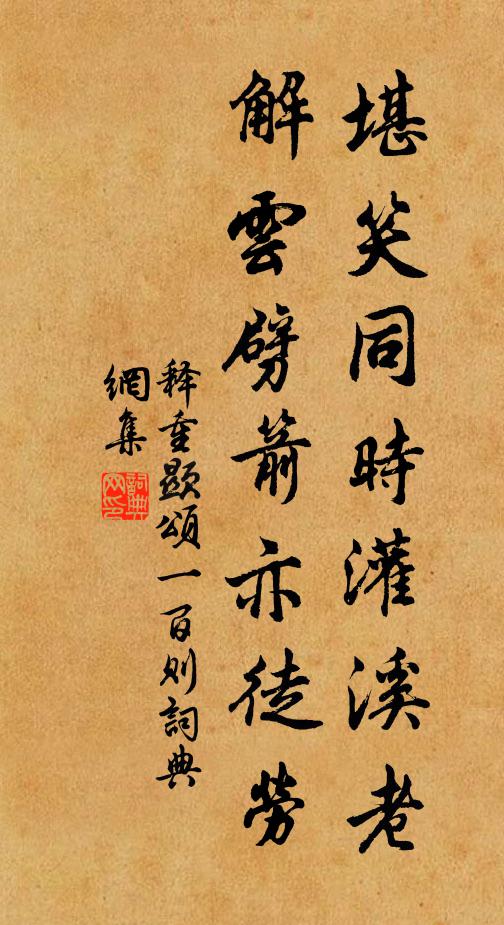 堪笑同時灌溪老
解雲劈箭亦徒勞
释重顯頌一百则詞典
網集
詞典
网印